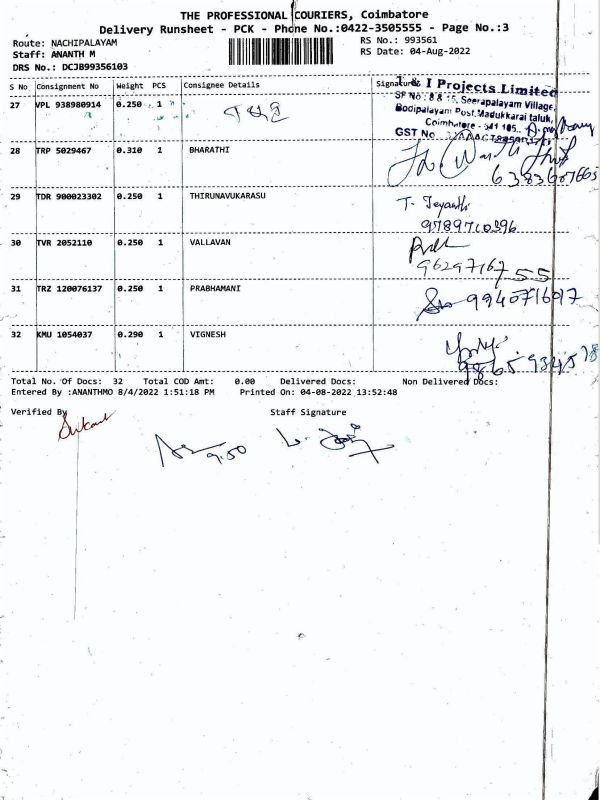 THE PROFESSIONAL COURIERS, Coimbatore
Delivery Runsheet - PCK - Phone No.:0422-3505555 - Page No.:3
Route: NACHIPALAYAM
RS No.: 993561
Staff: ANANTH M
RS Date: 04-Aug-2022
DRS No.: DCJB99356103
S No Consignment No Weight PCS Consignee Details Signature
I & I Projects Limited
SF No : 8 & 15, Seerapalayam Village,
Bodipalayam Post, Madukkarai taluk,
Coimbatore - 641 105.
GST No.
27 VPL 938980914 0.250 1
28 TRP 5029467 0.310 1 BHARATHI
6383607665
29 TDR 900023302 0.250 1 THIRUNAVUKARASU
T. Jeyanthi
9789710396
30 TVR 2052110 0.250 1 VALLAVAN
9629716755
31 TRZ 120076137 0.250 1 PRABHAMANI
9940716017
32 KMU 1054037 0.290 1 VIGNESH
9865934578
Total No. Of Docs: 32 Total COD Amt: 0.00 Delivered Docs: Non Delivered Docs:
Entered By :ANANTHMO 8/4/2022 1:51:18 PM Printed On: 04-08-2022 13:52:48
Verified By Staff Signature
9.50